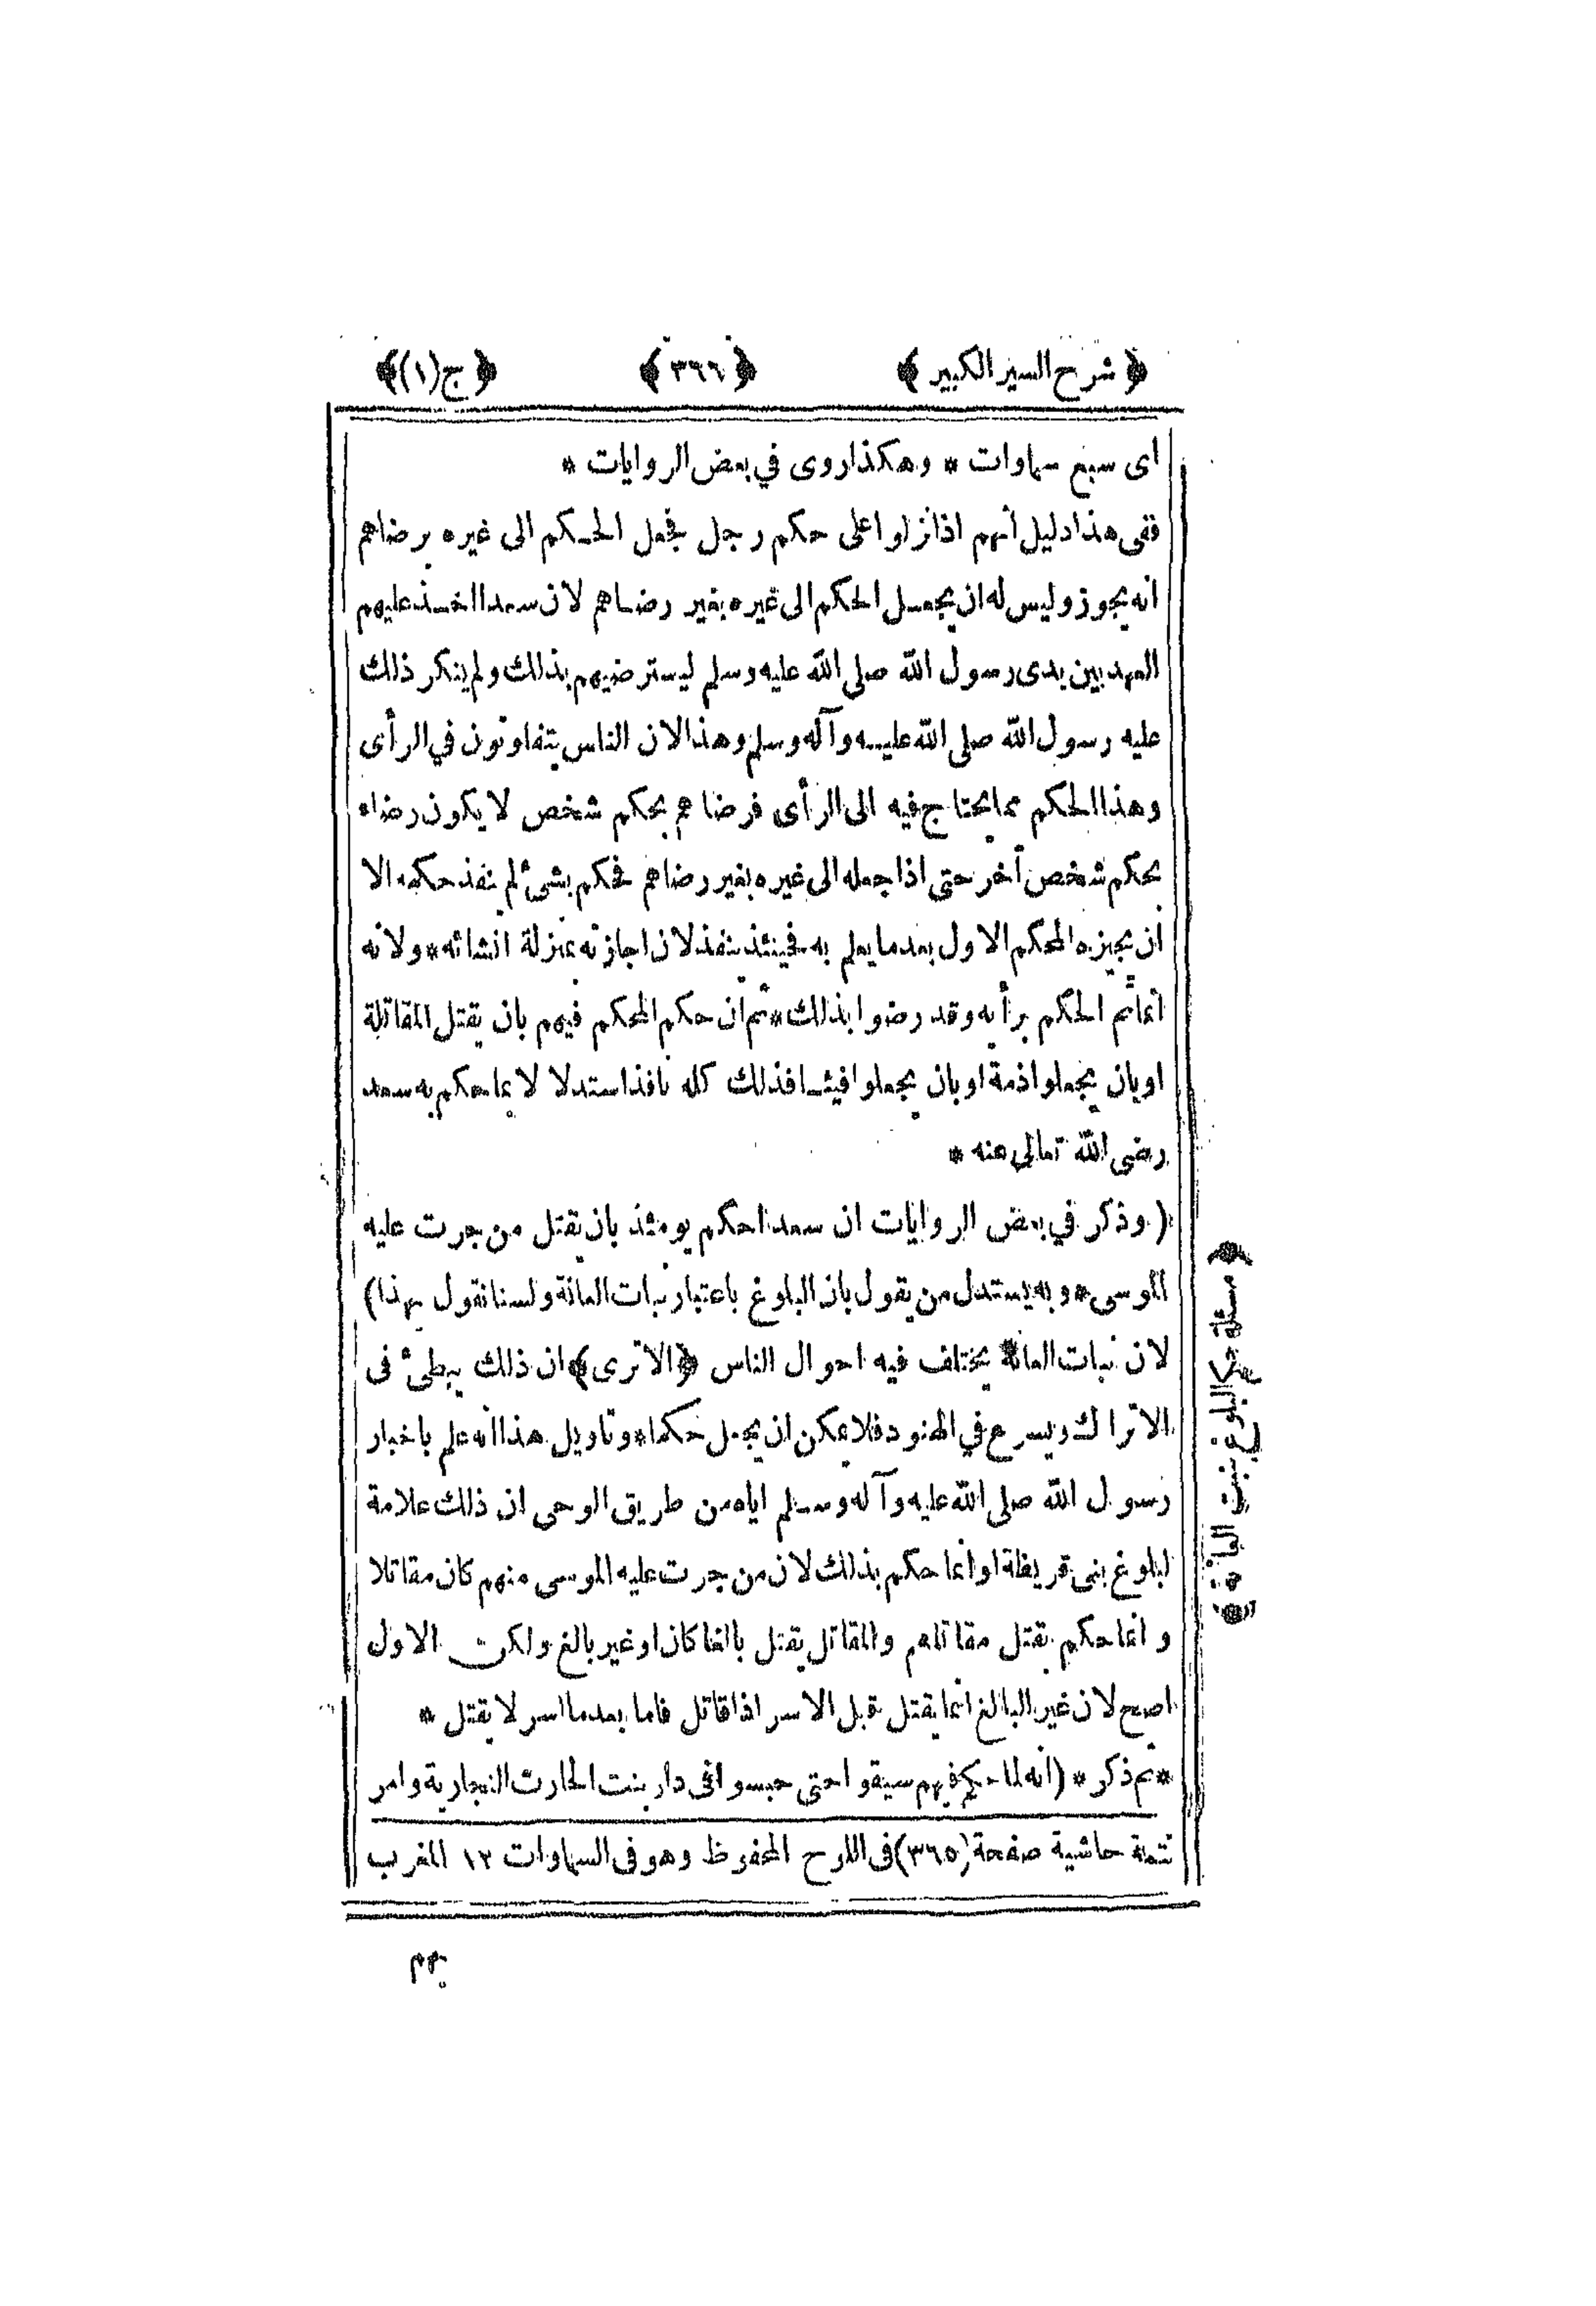 ﴿ شرح السير الكبير ﴾ ﴿ ٣٦٦ ﴾ ﴿ ج(١)﴾
اى سبع سماوات * وهكذا روى في بعض الروايات *
ففى هذا دليل أنهم اذا نزلوا على حكم رجل فجعل الحكم الى غيره برضاهم
انه يجوز وليس له ان يجعل الحكم الى غيره بغير رضاهم لان سعدا اخذ عليهم
العهد بين يدى رسول الله صلى الله عليه وسلم ليسترضيهم بذلك ولم ينكر ذلك
عليه رسول الله صلى الله عليه وآله وسلم وهذا لان الناس يتفاوتون في الرأى
وهذا الحكم مما يحتاج فيه الى الرأى فرضاهم بحكم شخص لا يكون رضاء
بحكم شخص آخر حتى اذا جعله الى غيره بغير رضاهم فحكم بشئ لم ينفذ حكمه الا
ان يجيزه المحكم الاول بعد ما يعلم به فحينئذ ينفذ لان اجازته بمنزلة انشائه * ولانه
انما تم الحكم برأيه وقد رضوا بذلك * ثم ان حكم المحكم فيهم بان يقتل المقاتلة
او بان يجعلوا ذمة او بان يجعلوا فيئا فذلك كله نافذ استدلالا بما حكم به سعد
رضى الله تعالى عنه *
( وذكر في بعض الروايات ان سعدا حكم يومئذ بان يقتل من جرت عليه
الموسى * وبه يستدل من يقول بان البلوغ باعتبار نبات العانة ولسنا نقول بهذا)
لان نبات العانة يختلف فيه احوال الناس ﴿الا ترى﴾ ان ذلك يبطئ فى
الاتراك ويسرع في الهنود فلا يمكن ان يجعل حكما * وتاويل هذا انه علم باخبار
رسول الله صلى الله عليه وآله وسلم اياه من طريق الوحى ان ذلك علامة
لبلوغ بنى قريظة او انما حكم بذلك لان من جرت عليه الموسى منهم كان مقاتلا
وانما حكم بقتل مقاتلهم والمقاتل يقتل بالغا كان او غير بالغ ولكن الاول
اصح لان غير البالغ انما يقتل قبل الاسر اذا قاتل فاما بعد ما اسر لا يقتل *
* ثم ذكر * (انه لما حكم فيهم سيقوا حتى حبسوا فى دار بنت الحارث النجارية وامر
تتمة حاشية صفحة (٣٦٥) فى اللوح المحفوظ وهو فى السماوات ١٢ المغرب
بهم
﴿ مسئلة حكم البلوغ بنبت العانة ﴾